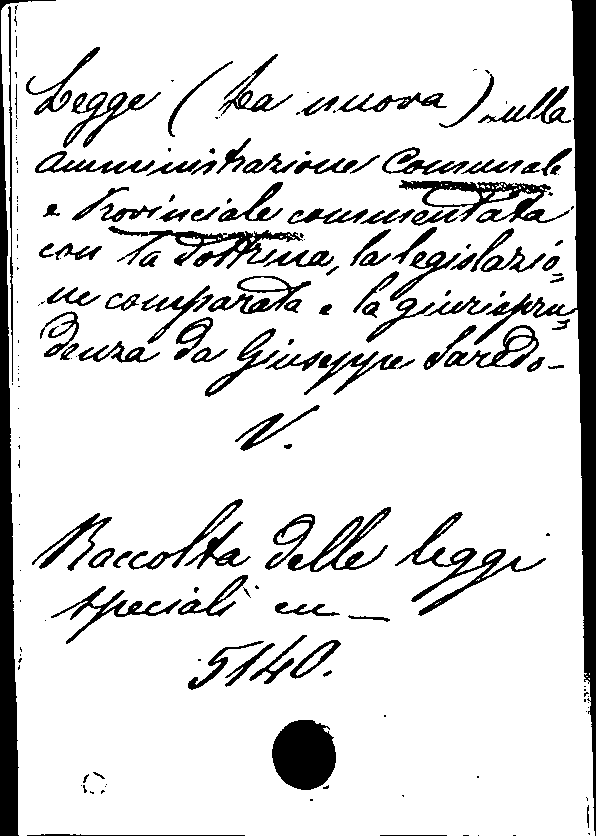 Legge (La nuova) sulla
amministrazione Comunale
e Provinciale commentata
con la dottrina, la legislazio=
ne comparata e la giurispru=
denza da Giuseppe Saredo-
V.
Raccolta delle leggi
speciali
5140.